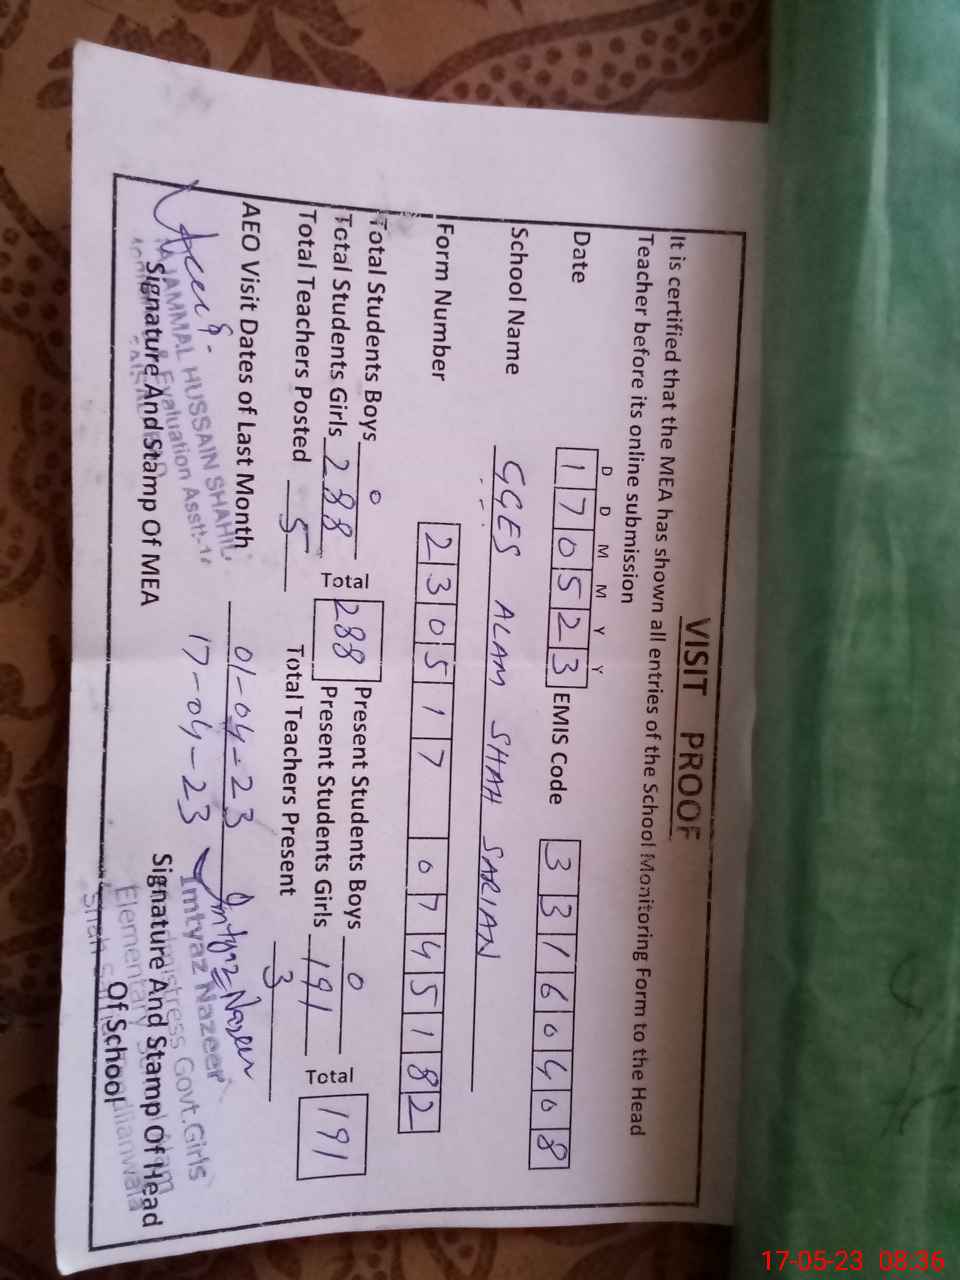 VISIT PROOF
It is certified that the MEA has shown all entries of the School Monitoring Form to the Head
Teacher before its online submission
D D M M Y Y
Date 170523 EMIS Code 33160408
School Name GGES ALAM SHAH SARIAN
Form Number 230517 0745182
Total Students Boys 0 Present Students Boys 0
Total Students Girls 288 Total 288 Present Students Girls 191 Total 191
Total Teachers Posted 5 Total Teachers Present 3
AEO Visit Dates of Last Month 01-04-23
17-04-23
Imtyaz Nazeer
HUSSAIN SHAHI
Evaluation Asstt-
Signature And Stamp Of MEA
Imtyaz Nazeer
Govt.Girls
Elementary
Signature And Stamp Of Head
Of School
17-05-23 08:36